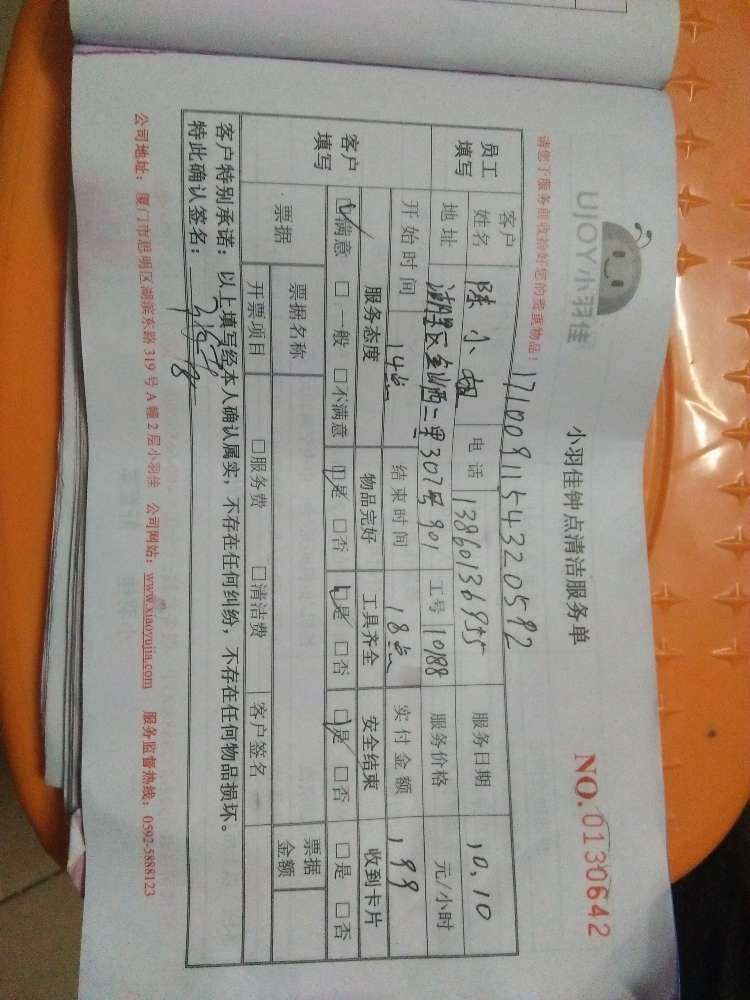 UJOY小羽佳
小羽佳钟点清洁服务单
NO.0130642
请您于服务前收拾好您的贵重物品!
1710091154320592
员工填写
客户姓名 陈小姐 电话 13860136955 服务日期 10.10
地址 湖里区金山西二里307号901 工号 10188 服务价格 元/小时
开始时间 14点 结束时间 18点 实付金额 199
客户填写
服务态度 物品完好 工具齐全 安全结束 收到卡片
☑满意 □一般 □不满意 ☑是 □否 ☑是 □否 ☑是 □否 □是 □否
票据 票据名称 票据金额
开票项目 □服务费 □清洁费 客户签名
客户特别承诺:以上填写经本人确认属实,不存在任何纠纷,不存在任何物品损坏。
特此确认签名:
公司地址:厦门市思明区湖滨东路319号A幢2层小羽佳 公司网站:www.xiaoyujia.com 服务监督热线:0592-5888123